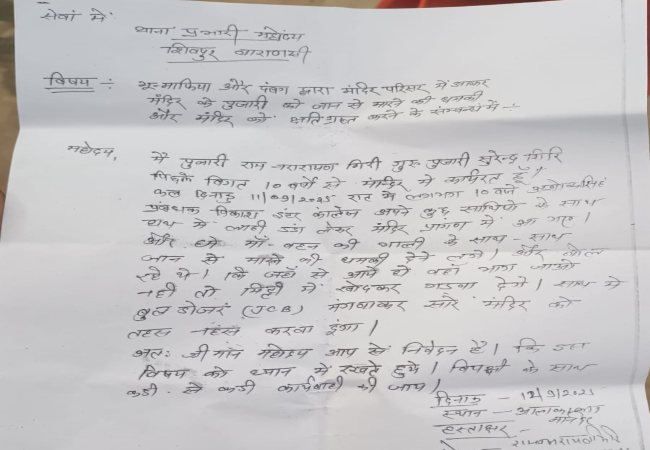 सेवा में
थाना प्रभारी महोदय
शिवपुर वाराणसी
विषय :- भू-माफिया और दबंग द्वारा मंदिर परिसर में आकर
मंदिर के पुजारी को जान से मारने की धमकी
और मंदिर को क्षतिग्रस्त करने के सम्बन्ध में -
महोदय,
मैं पुजारी राम नारायण गिरी गुरु पुजारी सुरेन्द्र गिरि
पिछले विगत 10 वर्षों से मंदिर में कार्यरत हूँ
कल दिनांक 11/09/2025 रात में लगभग 10 बजे
प्रबंधक विकास इंटर कालेज अपने कुछ साथियों के साथ
हाथ में लाठी डंडा लेकर मंदिर प्रांगण में आ गए।
और माँ-बहन की गाली के साथ-साथ
जान से मारने की धमकी देने लगे। और बोल
रहे थे। कि जहाँ से आये हो वहाँ भाग जाओ
नहीं तो मिट्टी में खोदकर गडवा देंगे। साथ में
बुलडोजर (JCB) मंगवाकर सारे मंदिर को
तहस-नहस करवा दूंगा।
अतः श्रीमान महोदय आप से निवेदन है। कि उक्त
विषय को ध्यान में रखते हुये। विपक्षी के साथ
कड़ी से कड़ी कार्यवाही की जाय।
दिनांक - 12/9/2025
स्थान -
मन्दिर
हस्ताक्षर -